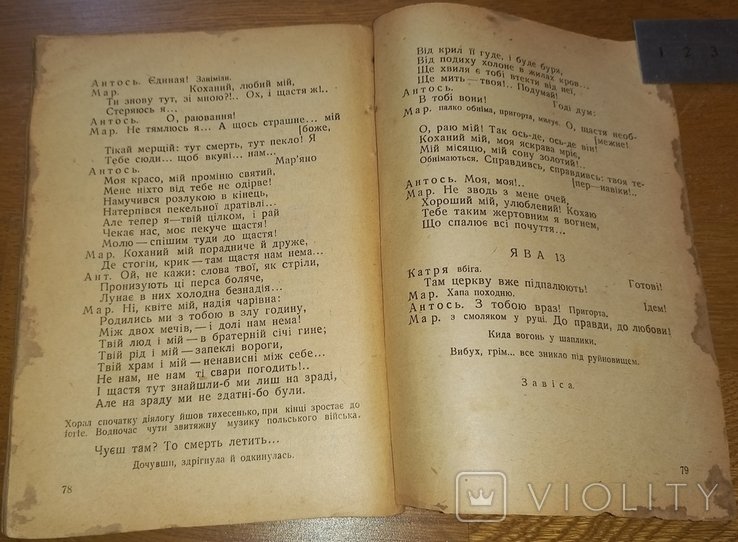 Антось. Єдиная! Заніміли.
Мар. Коханий, любий мій,
Ти знову тут, зі мною?!.. Ох, і щастя ж!..
Стеряюсь я...
Антось. О, раювання!
Мар. Не тямлюсь я... А щось страшне... мій
[боже,
Тікай мерщій: тут смерть, тут пекло! Я
Тебе сюди... щоб вкупі... нам...
Антось. Мар'яно
Моя красо, мій проміню святий,
Мене ніхто від тебе не одірве!
Намучився розлукою в кінець,
Натерпівся пекельної дратівлі...
Але тепер я—твій цілком, і рай
Чекає нас, моє пекуче щастя!
Молю — спішим туди до щастя!
Мар. Коханий мій порадниче й друже,
Де стогін, крик—там щастя нам нема...
Ант. Ой, не кажи: слова твої, як стріли,
Пронизують ці перса боляче,
Лунає в них холодна безнадія...
Мар. Ні, квіте мій, надія чарівна:
Родились ми з тобою в злу годину,
Між двох мечів,—і долі нам нема!
Твій люд і мій—в братерній січі гине;
Твій рід і мій—запеклі вороги,
Твій храм і мій—ненависні між себе...
Не нам, не нам ті свари погодить!..
І щастя тут знайшли-б ми лиш на зраді,
Але на зраду ми не здатні-бо були.
Хорал спочатку діялогу йшов тихесенько, при кінці зростає до
forte. Водночас чути звитяжну музику польського війська.
Чуєш там? То смерть летить...
Дочувши, здрігнула й одкинулась.
78
Від крил її гуде, і буде бури,
Від подиху холоне в жилах кров...
Ще хвиля є тобі втекти від неї,
Ще мить—твоя!.. Подумай!
Антось. Годі дум:
В тобі вони!
Мар. палко обніма, пригорта, милує. О, щастя необ-
[межне!
О, раю мій! Так ось-де, ось-де він!
Коханий мій, моя яскрава мріє,
Мій місяцю, мій сону золотий!..
Обнімаються. Справдивсь, справдивсь: твоя те-
[пер—навіки!..
Антось. Моя, моя!..
Мар. Не зводь з мене очей,
Хороший мій, улюблений! Кохаю
Тебе таким жертовним я вогнем,
Що спалює всі почуття...
ЯВА 13
Катря вбіга.
Там церкву вже підпалюють! Готові!
Мар. Хапа походню.
Антось. З тобою враз! Пригорта. Ідем!
Мар. з смоляком у руці. До правди, до любови!
Кида вогонь у шаплики.
Вибух, грім... все зникло під руйновищем.
Завіса.
79
1 2 3
VIOLITY